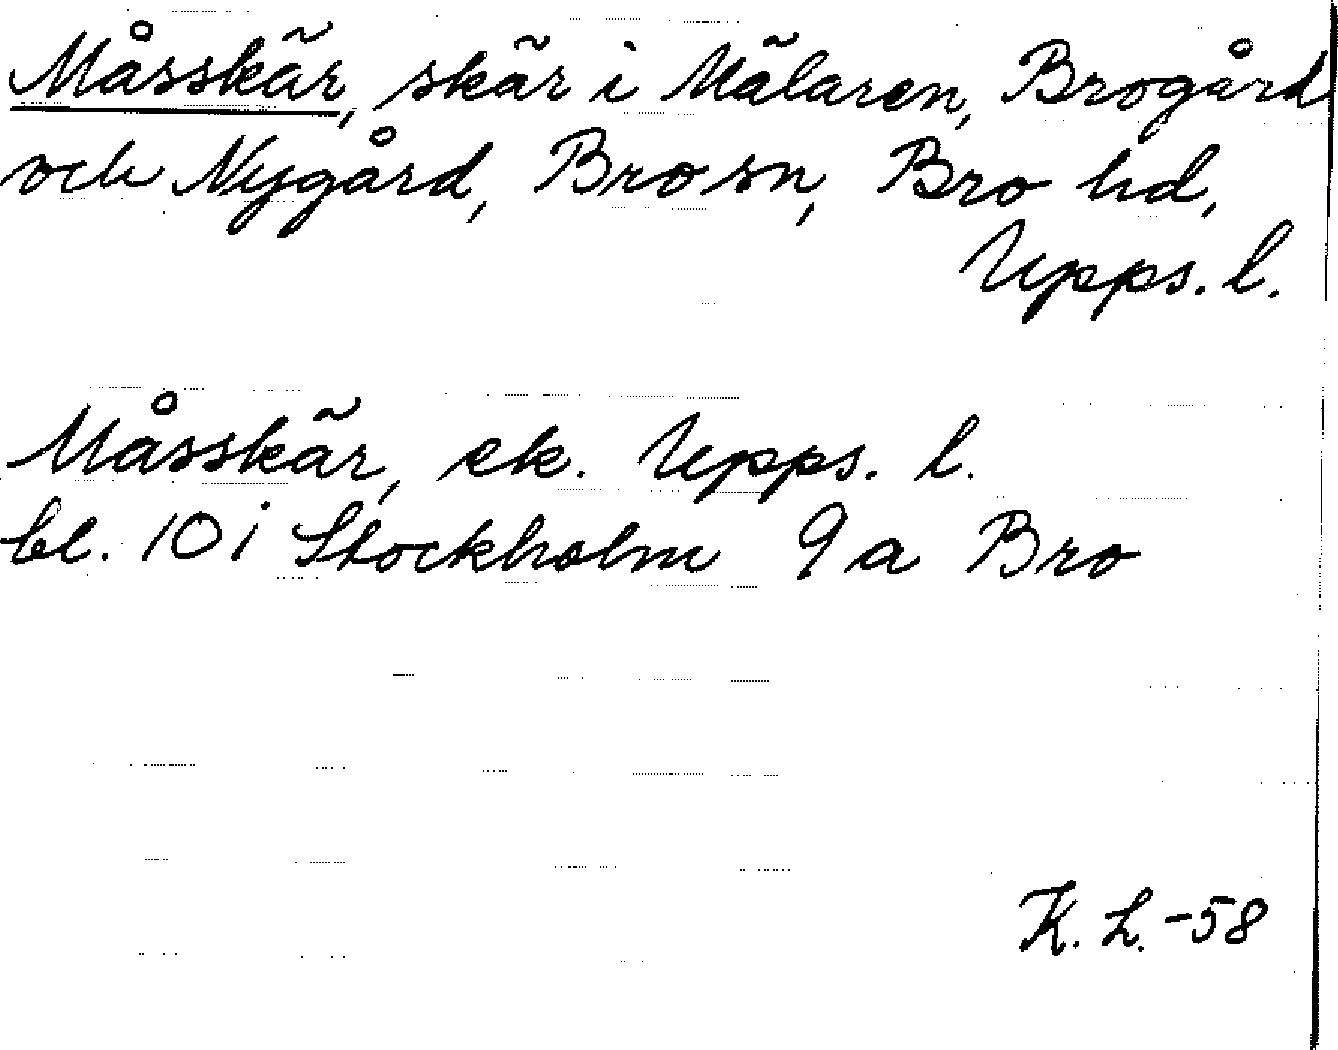 Måsskär, skär i Mälaren, Brogård
och Nygård, Bro sn, Bro hd,
Upps. l.
Måsskär, ek. Upps. l.
bl. 10 i Stockholm 9 a Bro
K. L. -58